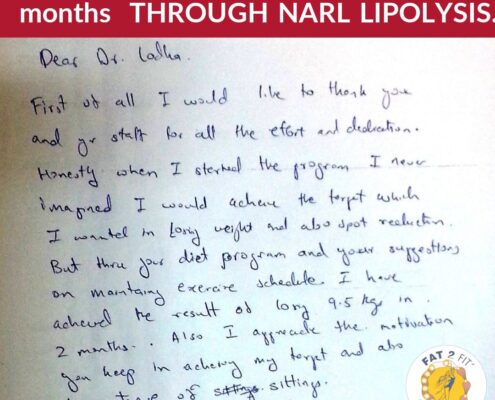 months THROUGH NARL LIPOLYSIS.
Dear Dr. Ladha.
First of all I would like to thank you
and yr staff for all the efort and dedication.
Honestly when I started the program I never
imagined I would achieve the target which
I wanted in losing weight and also spot reduction.
But thru your diet program and your suggestions
on maintaing exercise schedule I have
achieved the result of losing 9.5 kgs in
2 months. Also I appreciate the motivation
you keep in achieving my target and also
of sittings.
FAT 2 FIT